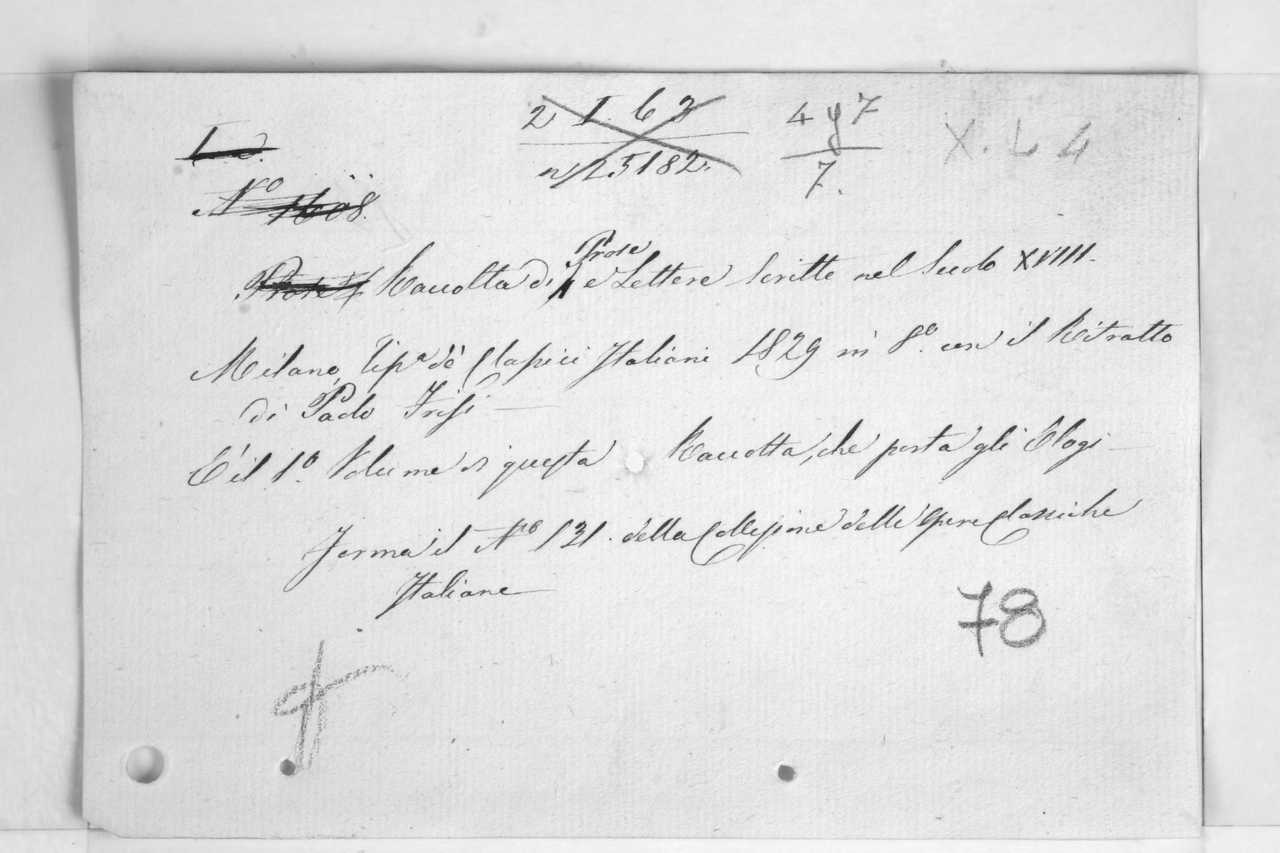 2 I. 6 3
n/25182.
4 y 7
7.
X. L 4
No 1608.
Prose
Prose Raccolta di e Lettere Scritte nel Secolo XVIII.
Milano, Tipa de Classici Italiani 1829 in 8o. con il Ritratto
di Paolo Frisi —
È il 1o. Volume di questa Raccolta, che porta gli Elogi —
Forma il No 131. della Collezione delle Opere Classiche
Italiane —
78